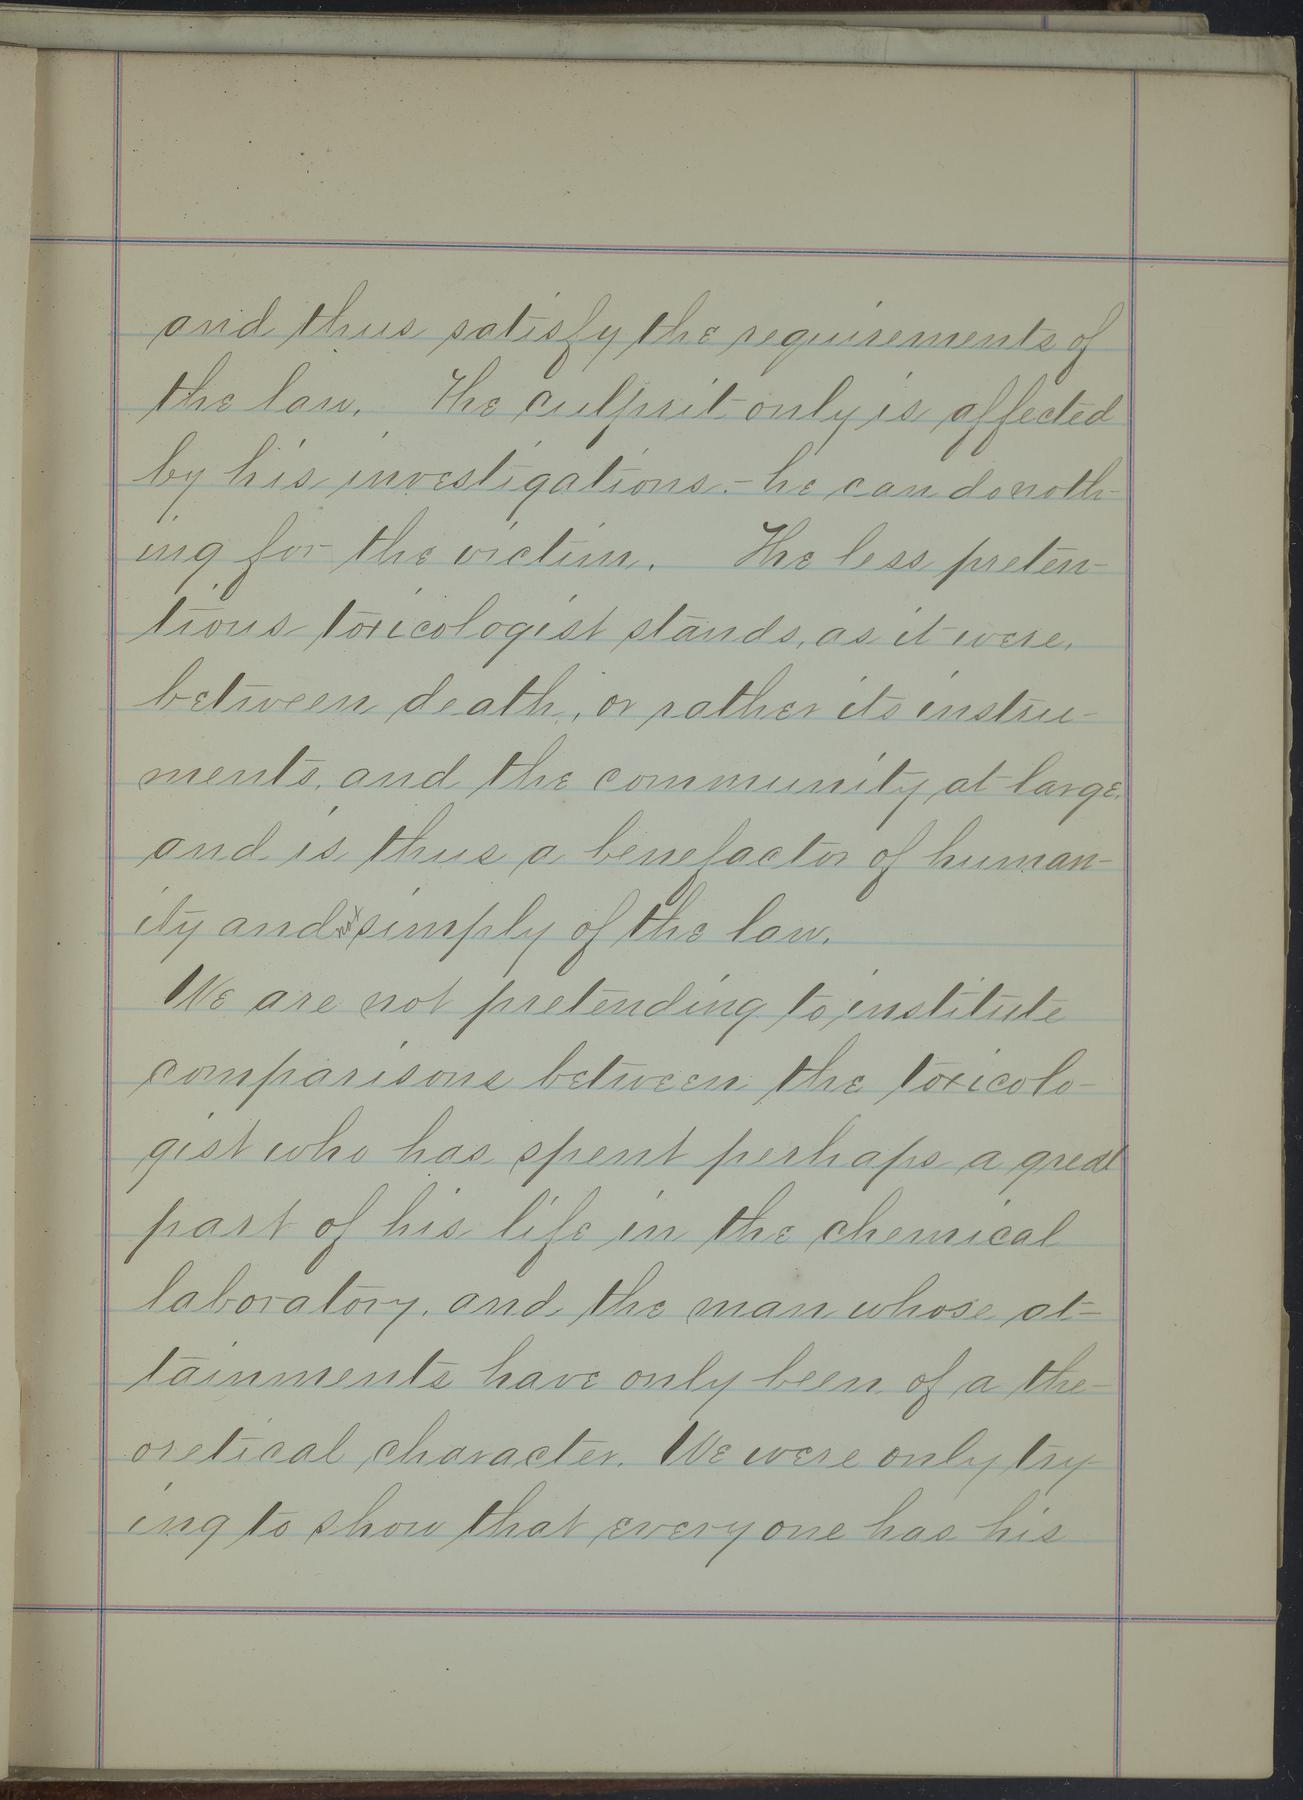 and thus satisfy the requirements of
the law. The culprit only is affected
by his investigations.- he can do noth-
ing for the victim. The less preten-
tious toxicologist stands, as it were,
between death, or rather its instru-
ments, and the community at large,
and is thus a benefactor of human-
ity and not simply of the law.
We are not pretending to institute
comparisons between the toxicolo-
gist who has spent perhaps a great
part of his life in the chemical
laboratory, and the man whose at-
tainments have only been of a the-
oretical character. We were only try-
ing to show that every one has his